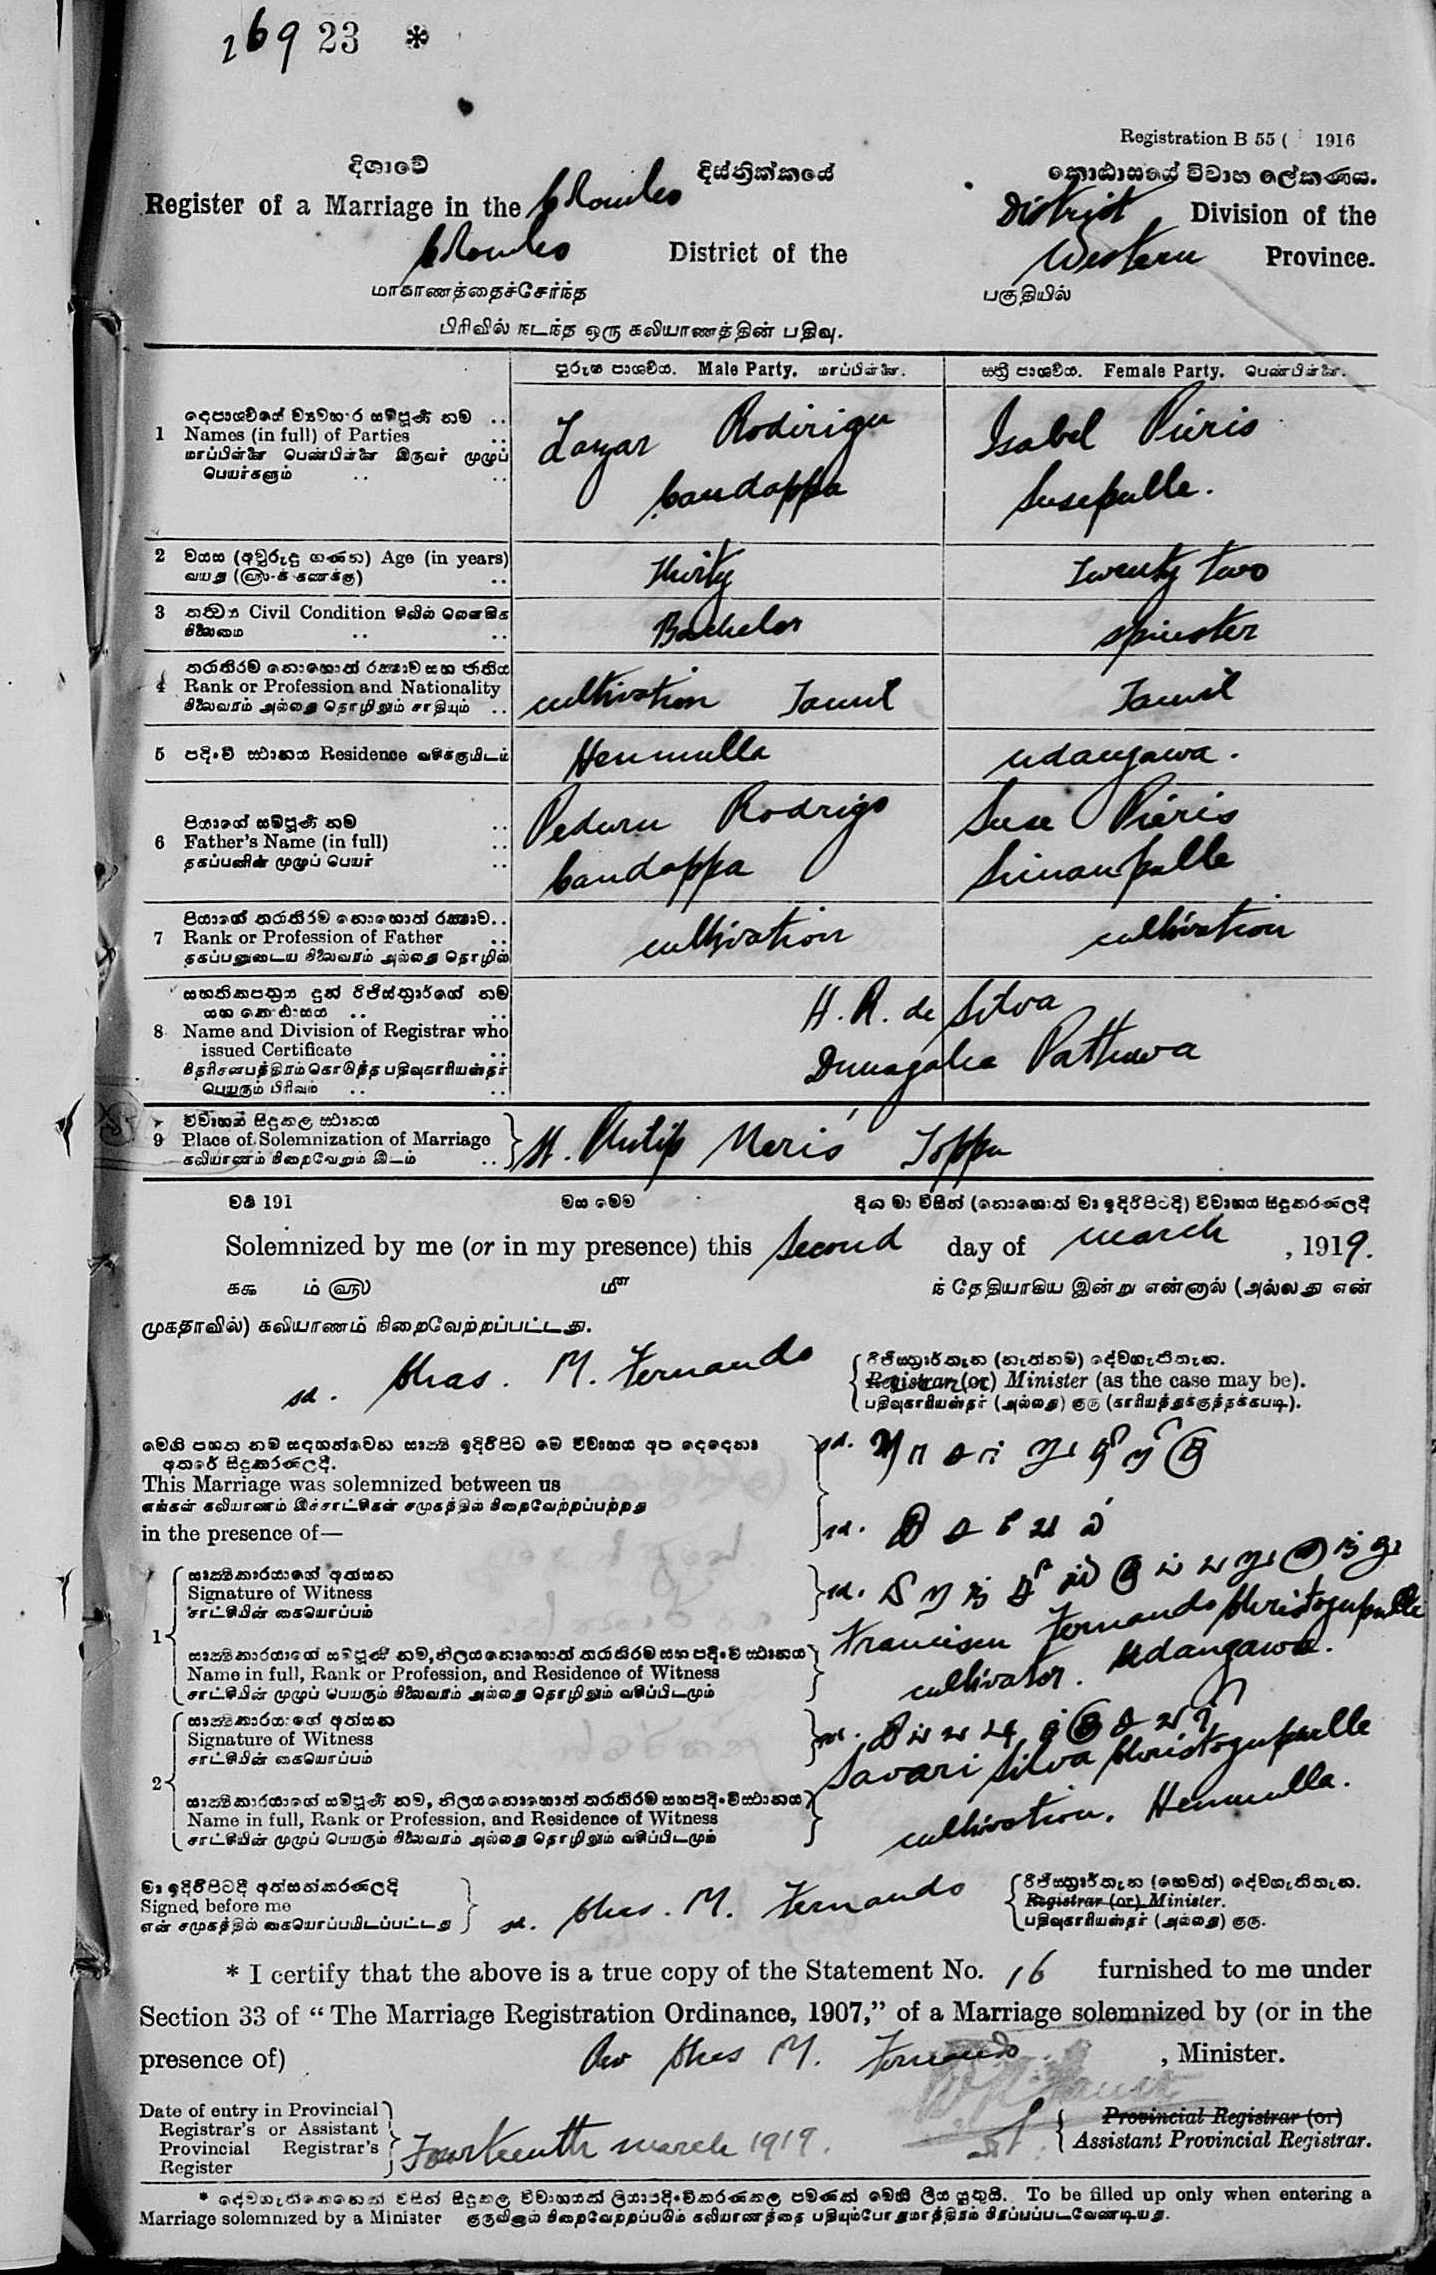 26923 *
Registration B 55 ( 1916
දිශාවේ දිස්ත්‍රික්කයේ කොඨාසයේ විවාහ ලේකණය.
Register of a Marriage in the Colombo District Division of the
Colombo District of the Western Province.
மாகாணத்தைச்சேர்ந்த பகுதியில்
பிரிவில் நடந்த ஒரு கலியாணத்தின் பதிவு.
Male Party. மாப்பிள்ளை. Female Party. பெண்பிள்ளை.
1 Names (in full) of Parties
மாப்பிள்ளை பெண்பிள்ளை இருவர் முழுப்
பெயர்களும்
Lazar Rodirigu
Candappa
Isabel Pieris
Susepulle.
2 වයස (අවුරුදු ගණන) Age (in years)
வயது (ளு-க் கணக்கு)
Thirty Twenty two
3 Civil Condition
நிலைமை
Bachelor spinster
4 Rank or Profession and Nationality
நிலைவரம் அல்லது தொழிலும் சாதியும்
cultivation Tamil Tamil
5 පදිංචි ස්ථානය Residence வசிக்குமிடம்
Henmulla udangawa.
6 පියාගේ සම්පූර්ණ නම
Father's Name (in full)
தகப்பனின் முழுப் பெயர்
Peduru Rodrigo
Candappa
Suse Pieris
Simanpulle
7 Rank or Profession of Father
தகப்பனுடைய நிலைவரம் அல்லது தொழில்
cultivation cultivation
8 Name and Division of Registrar who
issued Certificate
பெயரும் பிரிவும்
H. R. de Silva
Dunagaha Pattuwa
9 විවාහය සිදුකල ස්ථානය
Place of Solemnization of Marriage
கலியாணம் நிறைவேறும் இடம்
St. Philip Neris Toppu
වර්ෂ 191 මස මෙම දින මා විසින් (නොහොත් මා ඉදිරිපිටදී) විවාහය සිදුකරණලදී
Solemnized by me (or in my presence) this Second day of march , 1919.
ந் தேதியாகிய இன்று என்னால் (அல்லது என்
முகதாவில்) கலியாணம் நிறைவேற்றப்பட்டது.
sd. Chas. M. Fernando
Registrar (or) Minister (as the case may be).
பதிவுகாரியஸ்தர் (அல்லது) குரு (காரியத்துக்குத்தக்கபடி).
This Marriage was solemnized between us
எங்கள் கலியாணம் இச்சாட்சிகள் சமுகத்தில் நிறைவேற்றப்பற்றது
in the presence of—
sd.
sd.
1 Signature of Witness
சாட்சியின் கையொப்பம்
sd.
Name in full, Rank or Profession, and Residence of Witness
சாட்சியின் முழுப் பெயரும் நிலைவரம் அல்லது தொழிலும் வசிப்பிடமும்
Francisco Fernando Christogupulle
cultivator. Udangawa.
2 Signature of Witness
சாட்சியின் கையொப்பம்
sd.
Name in full, Rank or Profession, and Residence of Witness
சாட்சியின் முழுப் பெயரும் நிலைவரம் அல்லது தொழிலும் வசிப்பிடமும்
Savari Silva Christogupulle
cultivation. Henmulla.
මා ඉදිරිපිටදී අත්සන්කරණලදී
Signed before me
என் சமுகத்தில் கையொப்பமிடப்பட்டது
sd. Chas. M. Fernando
Registrar (or) Minister.
பதிவுகாரியஸ்தர் (அல்லது) குரு.
* I certify that the above is a true copy of the Statement No. 16 furnished to me under
Section 33 of “The Marriage Registration Ordinance, 1907,” of a Marriage solemnized by (or in the
presence of) Rev Chas M. Fernando , Minister.
Date of entry in Provincial
Registrar's or Assistant
Provincial Registrar's
Register
Fourteenth march 1919.
Provincial Registrar (or)
Assistant Provincial Registrar.
To be filled up only when entering a
Marriage solemnized by a Minister குருவினால் நிறைவேற்றப்படும் கலியாணத்தை பதியும்போதுமாத்திரம் நிரப்பப்படவேண்டியது.